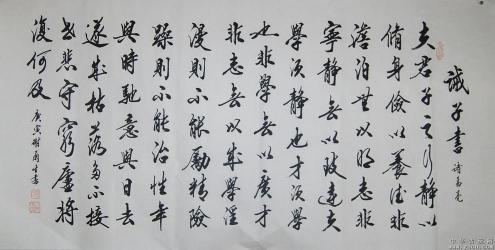 誡子書 諸葛亮
夫君子之行靜以
脩身儉以養德非
澹泊無以明志非
寧靜無以致遠夫
學須靜也才須學
也非學無以廣才
非志無以成學淫
漫則不能勵精險
躁則不能治性年
與時馳意與日去
遂成枯落多不接
世悲守窮廬將
復何及
庚寅